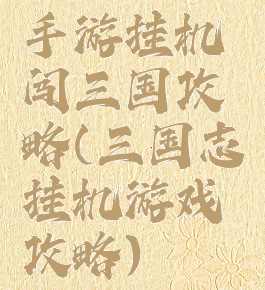 手游挂机
闯三国攻
略(三国志
挂机游戏
攻略)